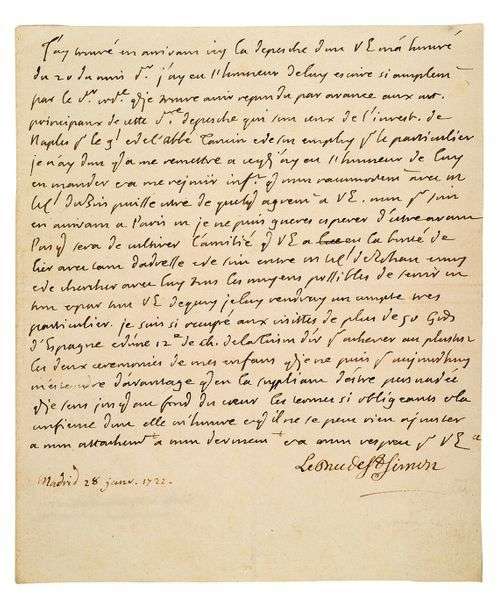 J'ay trouvé en arrivant icy la depesche dont V E m'a honoré
du 20 du mois dr. j'ay eu l'honneur de luy escrire si amplemt
par le dr ordre qu'je trouve avoir repondu par avance aux art.
principaux de cette dre depesche qui sont ceux de l'invest. de
Naples pr le gl et de l'abbé Tencin et de son employ pr le particulier
je n'ay donc qu'a me remettre a ce qu'j'ay eu l'honneur de luy
en mander et a me rejouir inft. que mon racommodemt avec
du Bois puisse estre de quelque agremt a V E. mon pr soin
en arrivant a Paris où je ne puis gueres esperer d'estre avant
Pasq sera de cultiver l'amitié que V E a eu la bonté de
lier avec tant d'adresse et de soin entre de Rohan et moy
et de chercher avec luy tous les moyens possibles de servir en
tout et par tout V E de quoy je luy rendray un compte tres
particulier. je suis si occupé aux visites de plus de 50 Gds
d'Espagne et d'une 12e de ch. de la toison d'or pr achever au plustost
les deux ceremonies de mes enfans qu'je ne puis pr aujourdhuy
m'estendre d'avantage qu'en la suppliant d'estre persuadée
qu'je sens jusqu'au fond du cœur les termes si obligeants et la
confience dont elle m'honore et qu'il ne se peut rien ajouster
a mon attachemt a mon devouemt et a mon respect pr V E
Le Duc de St Simon
Madrid 28 janv. 1722.